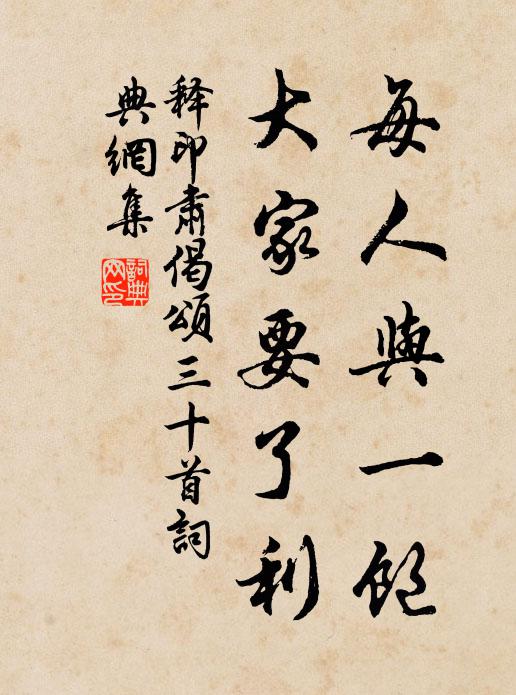 每人與一飽
大家要了利
釋印肅偈頌三十首詞
典網集
詞典
网印